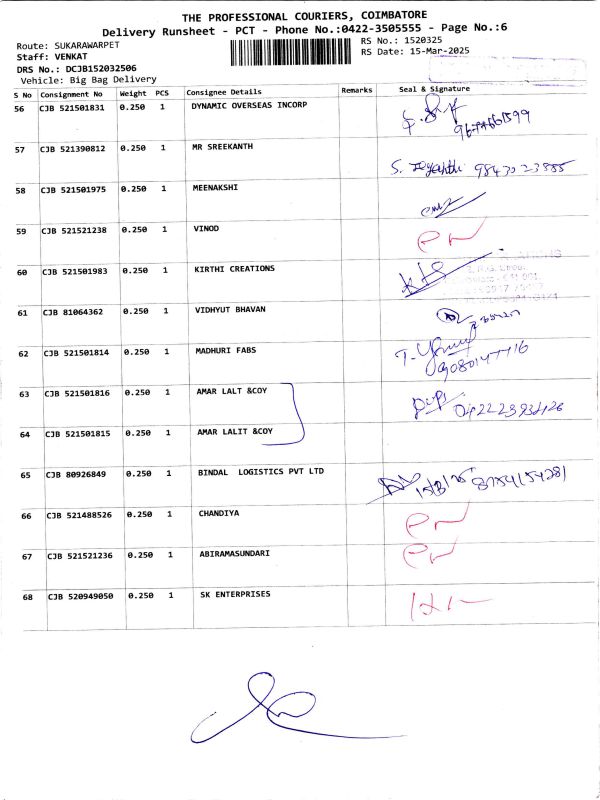 THE PROFESSIONAL COURIERS, COIMBATORE
Delivery Runsheet - PCT - Phone No.:0422-3505555 - Page No.:6
Route: SUKARAWARPET RS No.: 1520325
Staff: VENKAT RS Date: 15-Mar-2025
DRS No.: DCJB152032506
Vehicle: Big Bag Delivery
S No Consignment No Weight PCS Consignee Details Remarks Seal & Signature
56 CJB 521501831 0.250 1 DYNAMIC OVERSEAS INCORP
57 CJB 521390812 0.250 1 MR SREEKANTH
S. Jeyanthi 98430 23885
58 CJB 521501975 0.250 1 MEENAKSHI
59 CJB 521521238 0.250 1 VINOD
60 CJB 521501983 0.250 1 KIRTHI CREATIONS
61 CJB 81064362 0.250 1 VIDHYUT BHAVAN
62 CJB 521501814 0.250 1 MADHURI FABS
63 CJB 521501816 0.250 1 AMAR LALT &COY
64 CJB 521501815 0.250 1 AMAR LALIT &COY
65 CJB 80926849 0.250 1 BINDAL LOGISTICS PVT LTD
66 CJB 521488526 0.250 1 CHANDIYA
67 CJB 521521236 0.250 1 ABIRAMASUNDARI
68 CJB 520949050 0.250 1 SK ENTERPRISES